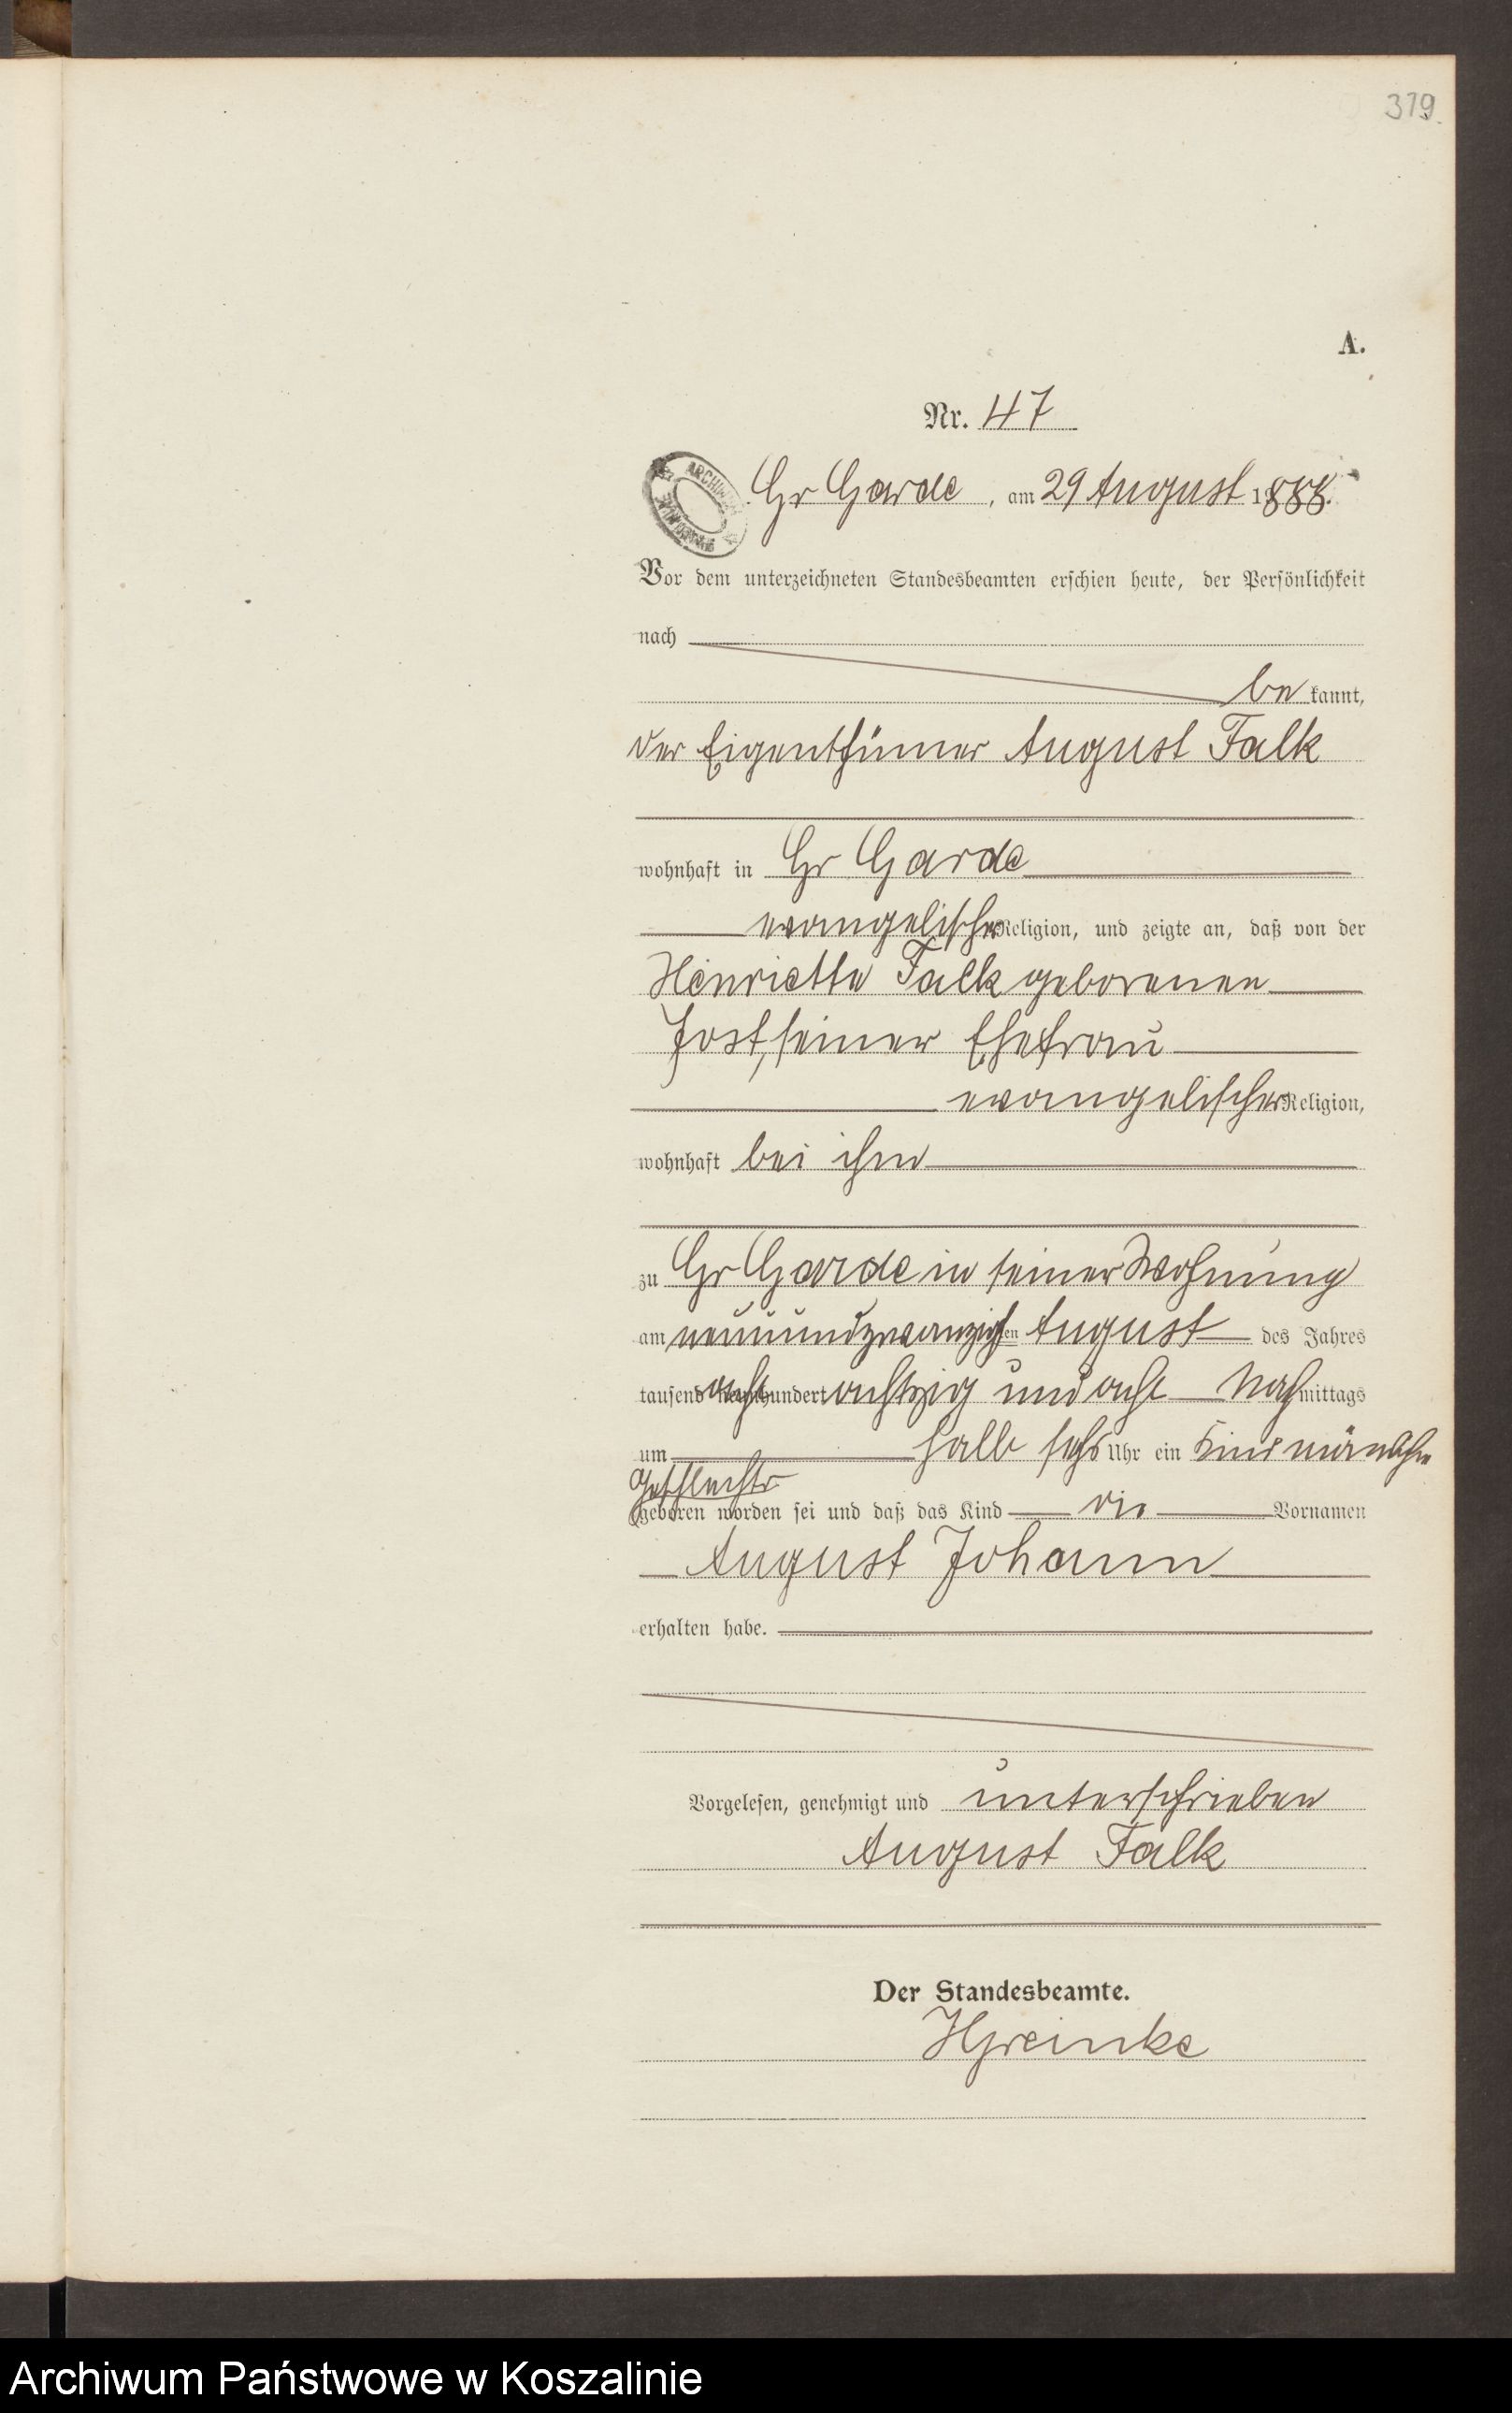 379.
A.
Nr. 47
Gr Garde, am 29 August 1888.
Vor dem unterzeichneten Standesbeamten erschien heute, der Persönlichkeit
nach
be kannt,
der Eigenthümer August Falk
wohnhaft in Gr Garde
evangelischer Religion, und zeigte an, daß von der
Henriette Falk geborenen
Jost, seiner Ehefrau
evangelischer Religion,
wohnhaft bei ihm
zu Gr Garde in seiner Wohnung
am neunundzwanzigsten August des Jahres
tausend acht hundert achtzig und acht Nachmittags
um halb sechs Uhr ein Kind männlichen
Geschlechts
geboren worden sei und daß das Kind die Vornamen
August Johann
erhalten habe.
Vorgelesen, genehmigt und unterschrieben
August Falk
Der Standesbeamte.
HGreinke
Archiwum Państwowe w Koszalinie